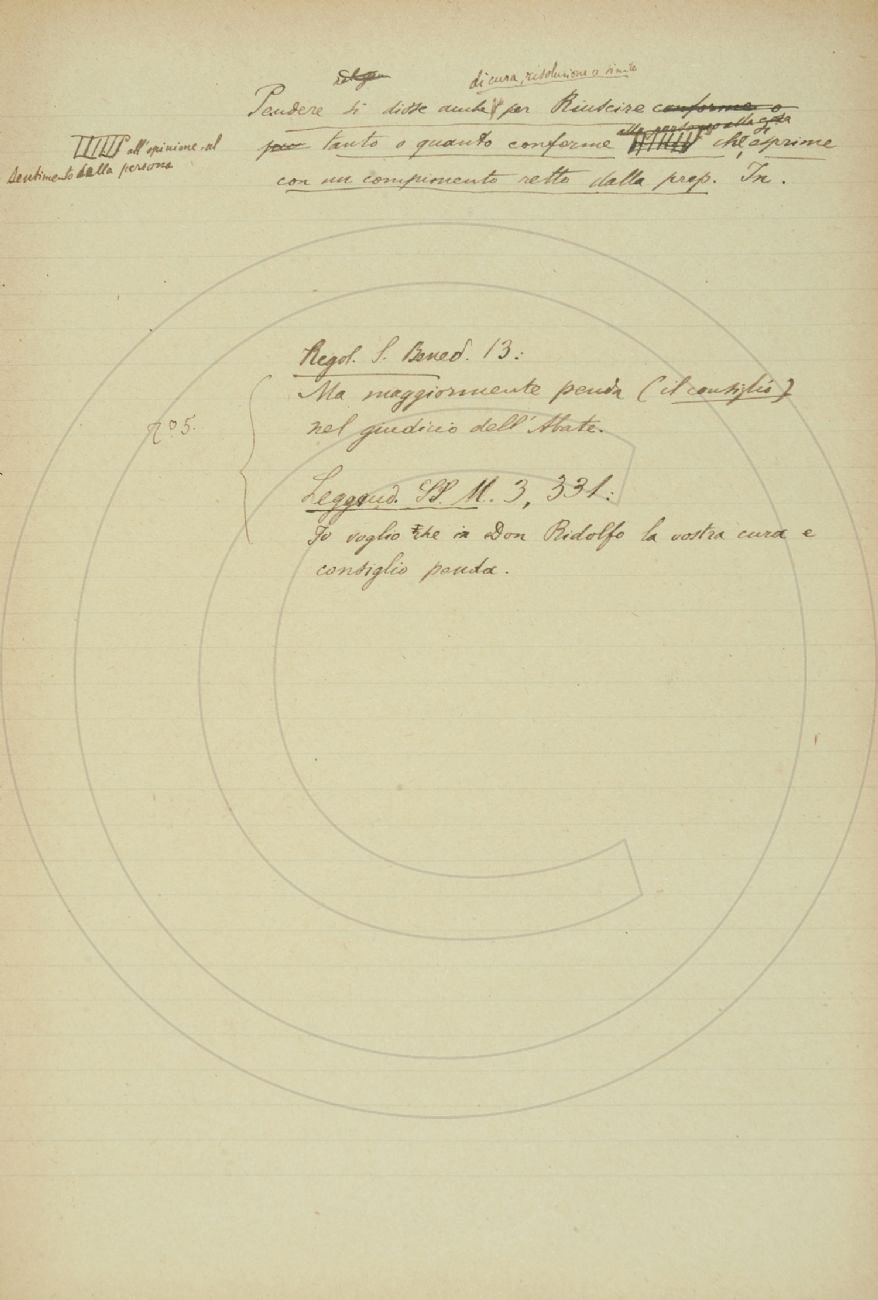 di cura, risoluzione o simile
Pendere si disse anche per Riuscire conforme o
tanto o quanto conforme che si esprime
all'opinione, al
sentimento della persona
con un compimento retto dalla prep. In.
Regol. S. Bened. 13:
Ma maggiormente penda (il consiglio)
nel giudicio dell'Abate.
n.° 5.
Leggend. SS. M. 3, 331:
Io voglio che in Don Ridolfo la vostra cura e
consiglio penda.